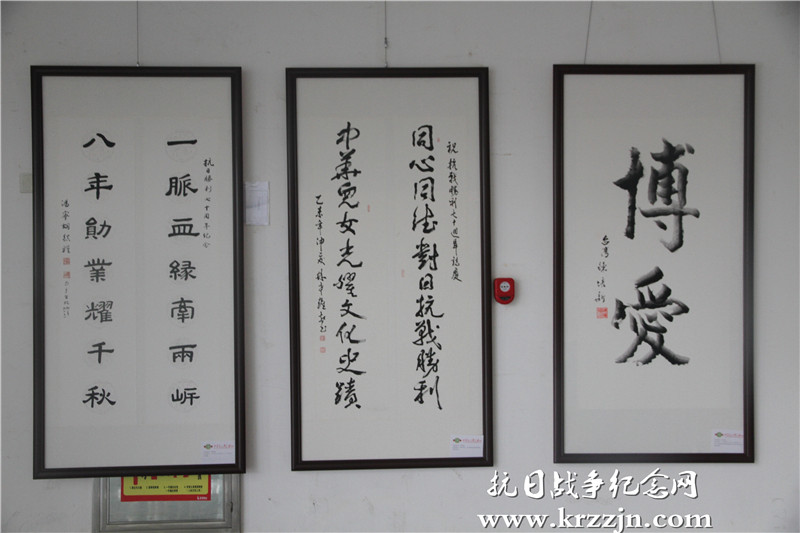 抗日勝利七十周年纪念
一脈血緣牽兩岸
八年勛業耀千秋
祝抗戰勝利七十週年誌慶
同心同德對日抗戰勝利
中華兒女光耀文化史蹟
乙未年
博愛
台湾
抗日战争纪念网
www.krzzjn.com